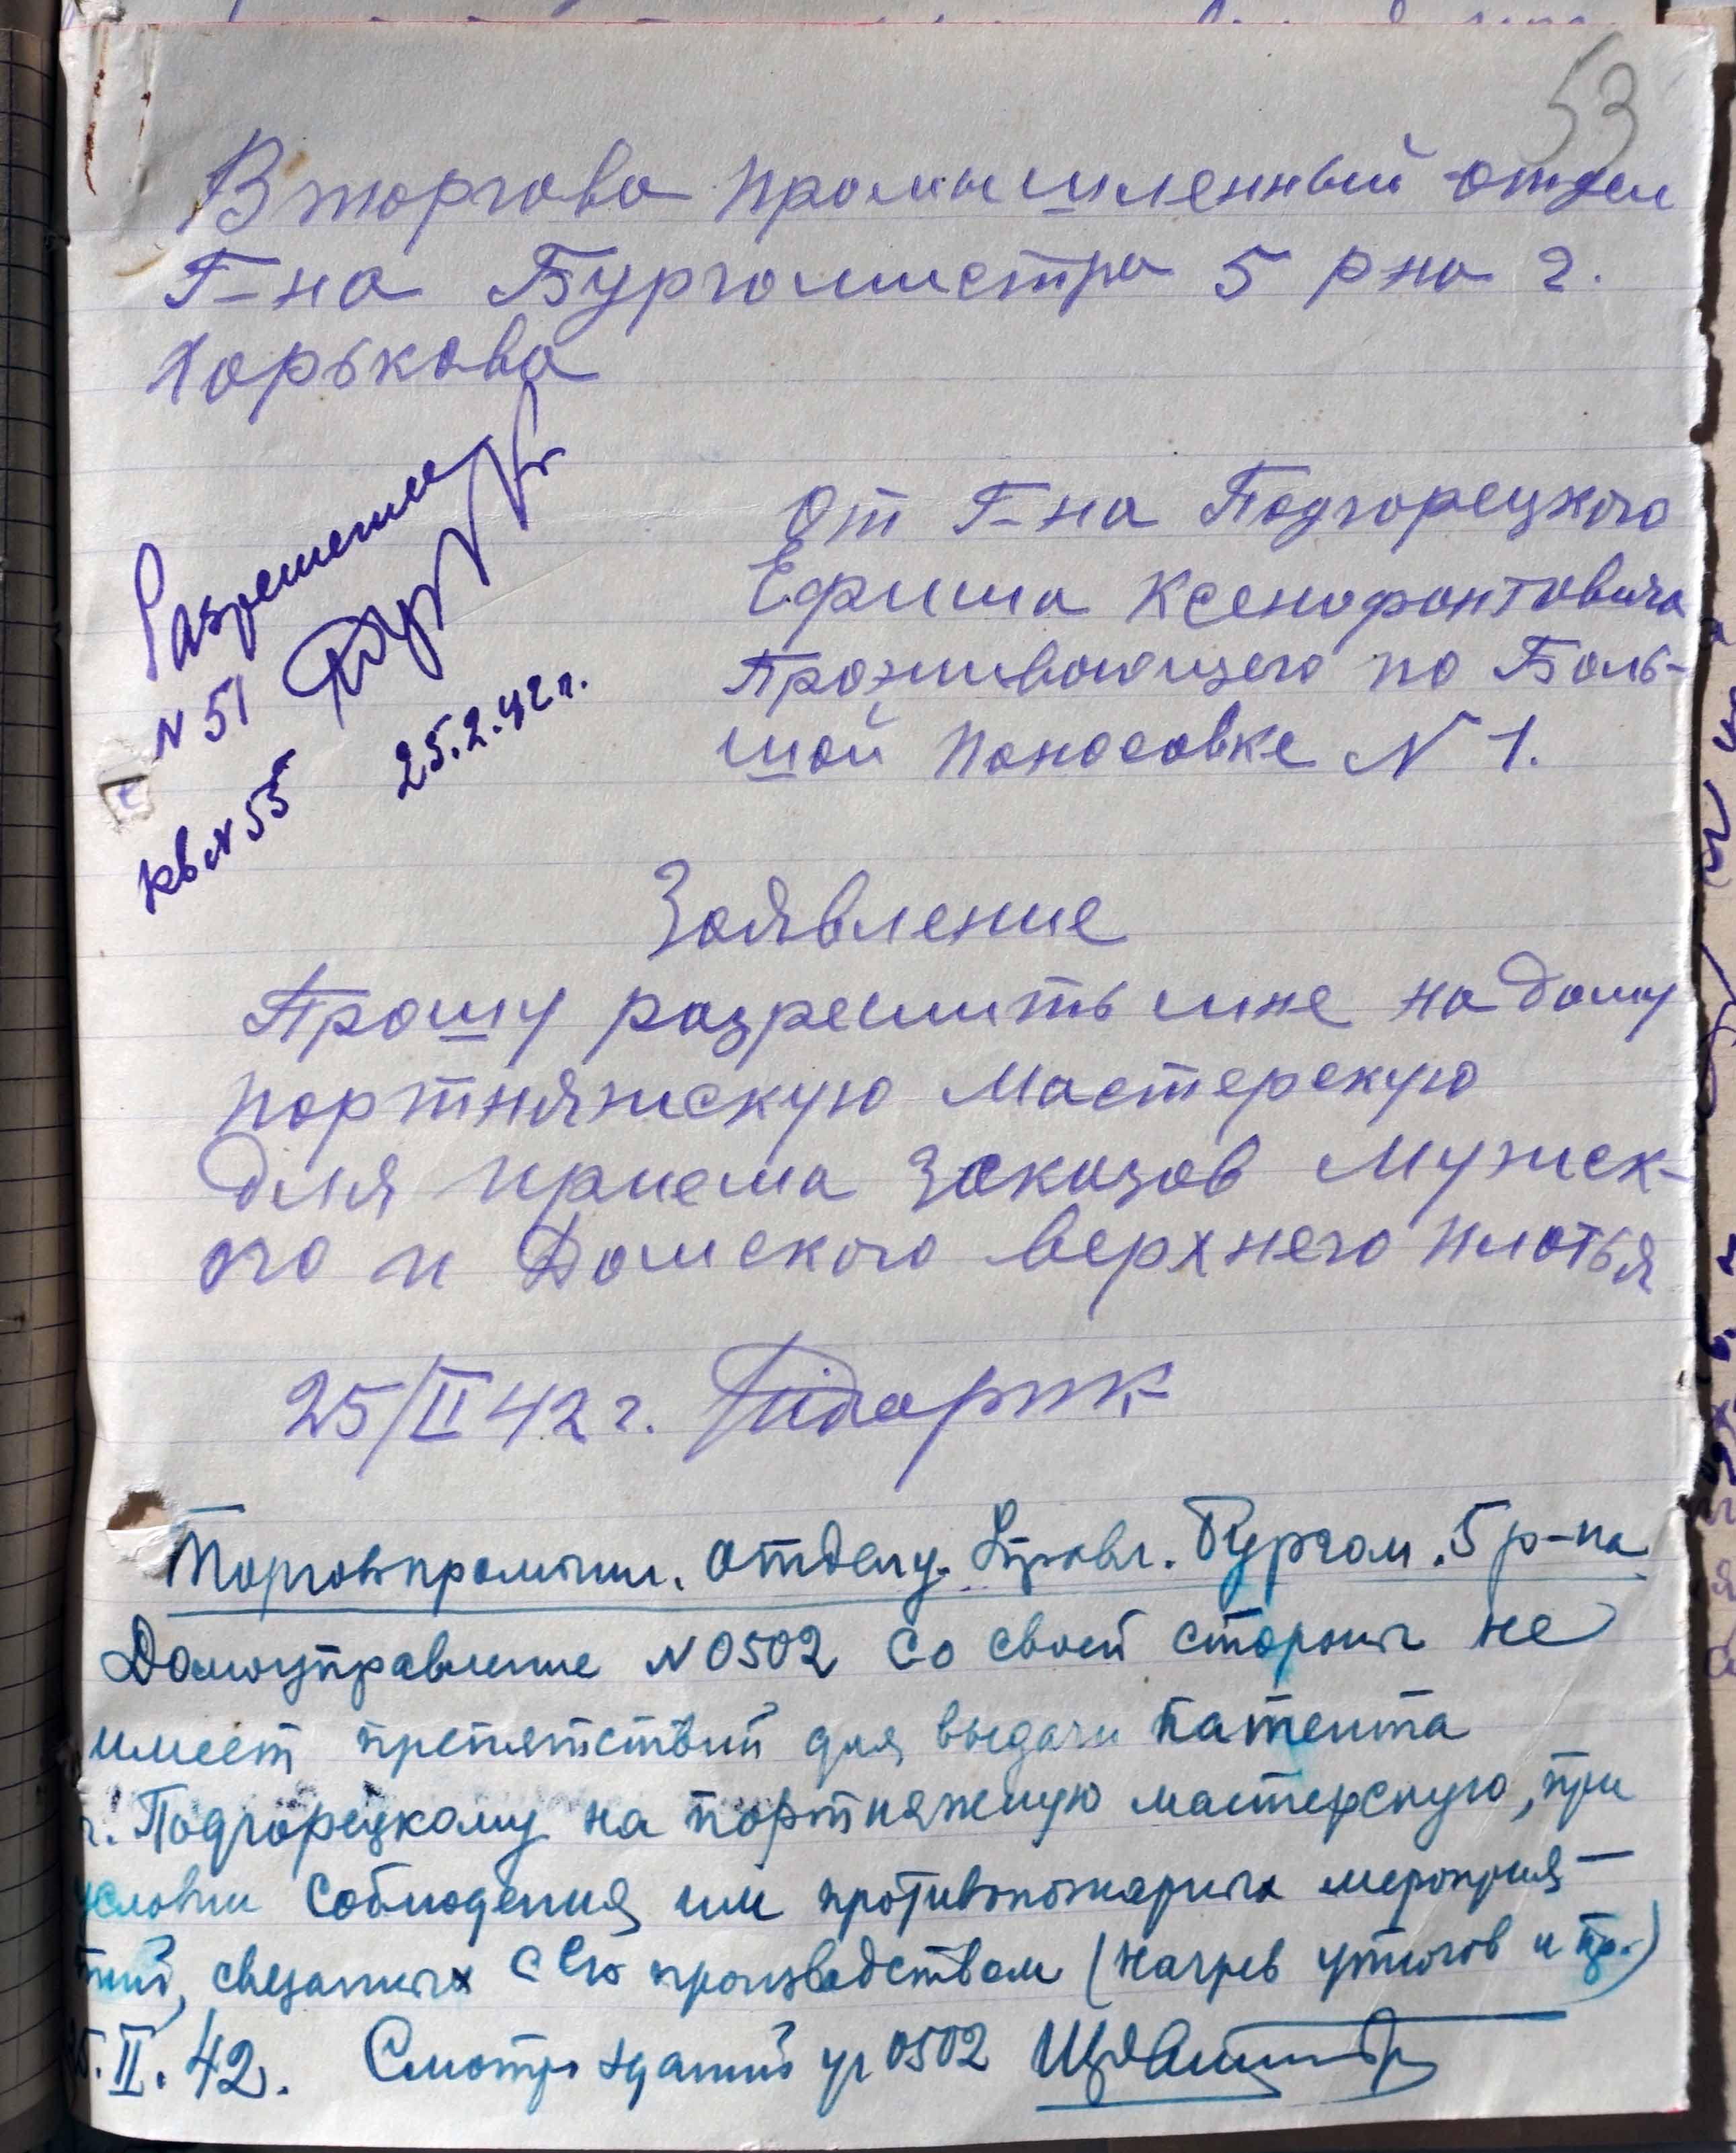 53
В торгова промышленный отдел
Г-на Бургомистра 5 рна г.
Харькова
Разрешить
N 51
25.2.42 г.
кв N 55
От Г-на Подгорецкого
Ефима Ксенофонтовича
Проживающего по Боль-
шой Паносовке N 1.
Заявление
Прошу разрешить мне на дому
портняжскую мастерскую
для приема заказов мужск-
ого и Дамского верхнего платья
25/II 42 г.
Торговпромышл. отделу. Управл. Бургом. 5 р-на
Домоуправление N 0502 со своей стороны не
имеет препятствий для выдачи патента
г. Подгорецкому на портняжную мастерскую, при
условии соблюдения им противопожарных мероприя-
тий, связаных с его производством (нагрев утюгов и пр.)
25.II.42. Смотр. зданий уч 0502